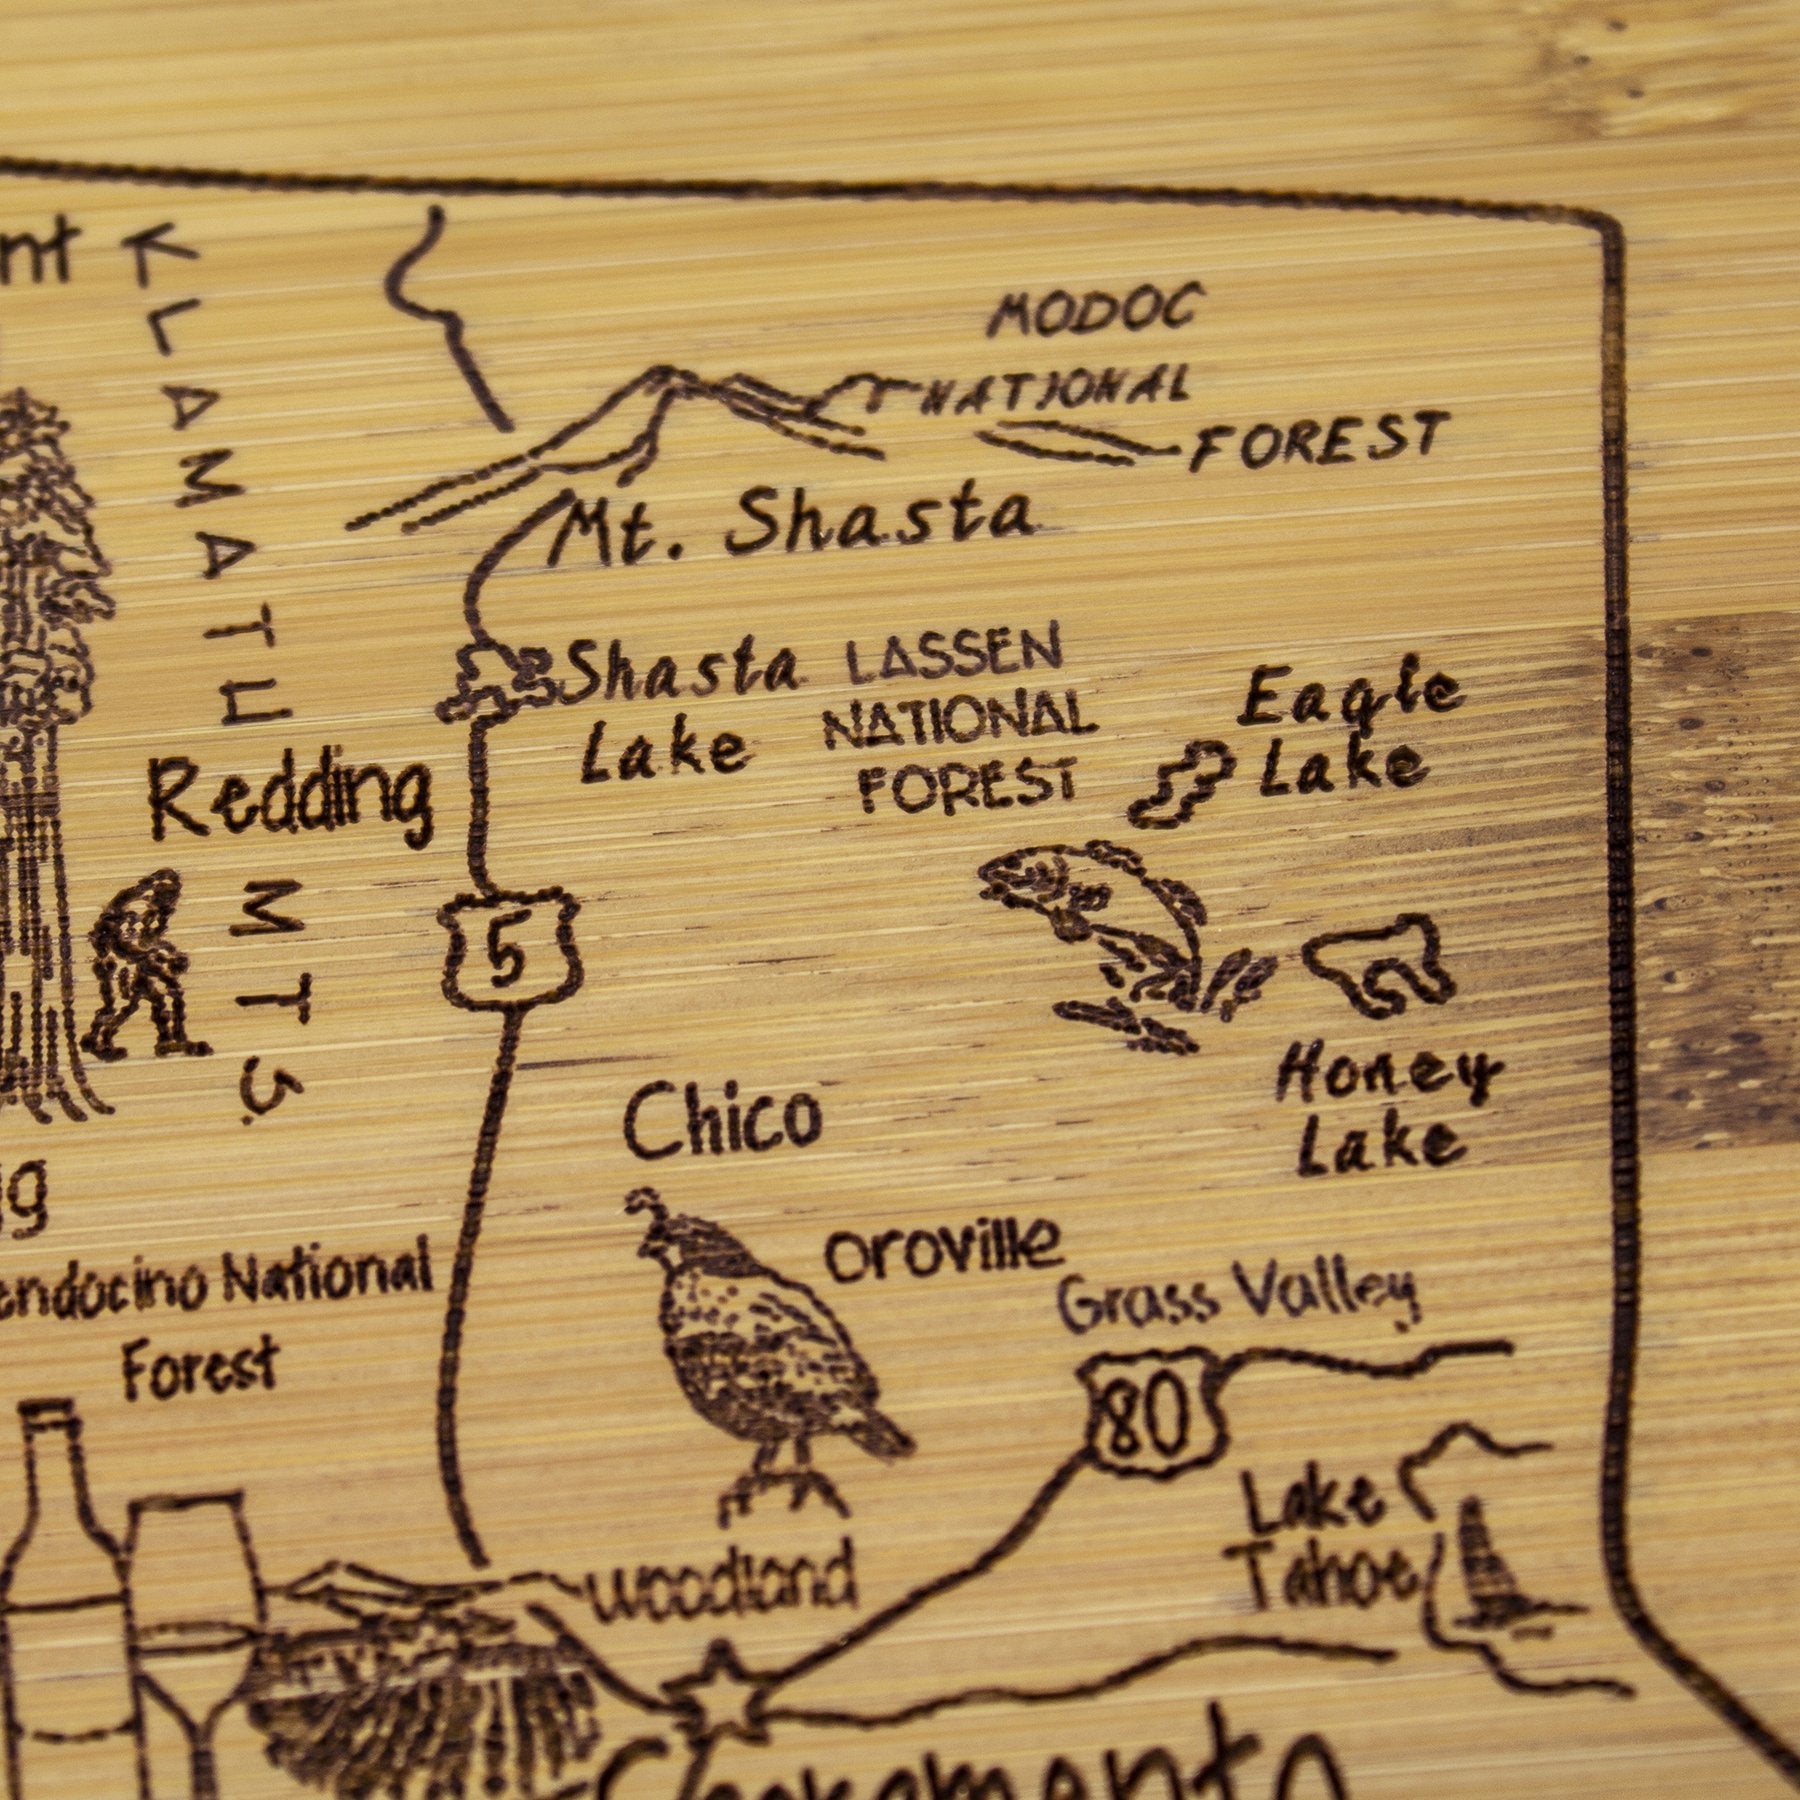 nt
KLAMATH MTS.
MODOC
NATIONAL
FOREST
Mt. Shasta
Shasta
Lake
LASSEN
NATIONAL
FOREST
Eagle
Lake
Redding
5
Honey
Lake
Chico
g
oroville
endocino National
Forest
Grass Valley
80
Lake
Tahoe
woodland
Sacramento